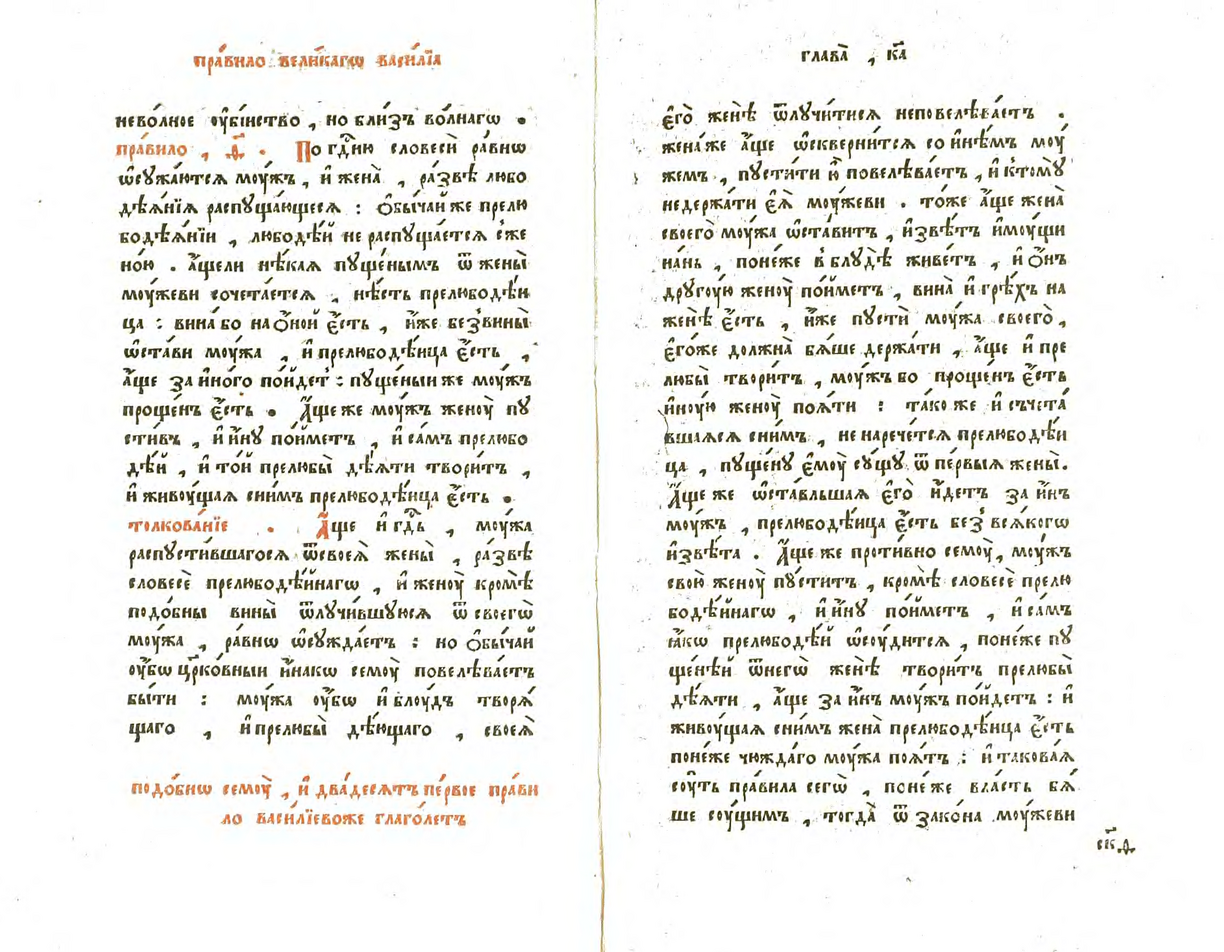 пра́вило вели́кагѡ васи́лїа
нево́лное ᲂу҆бі́йство , но бли́зъ во́лнагѡ .
пра́вило , ѳ҃ . По гдⷭ҇ню словесѝ ра́внѡ
ѡ҆сꙋжа́ютсѧ моу́жъ , и҆ жена̀ , ра́звѣ любо
дѣѧ́нїѧ распꙋща́ющесѧ : ѻ҆бы́чай же прелю
бодѣѧ́нїи , любодѣ́й не распꙋща́етсѧ с̾же
но́ю . а҆́щели нѣ́каѧ пꙋще́нымъ ѿ жены̀
моу́жеви сочета́етсѧ , нѣ́сть прелюбодѣ́и
ца : вина́ бо на ѻ҆́ной є҆́сть , и҆́же без̾вины̀
ѡ҆ста́ви моу́жа , и҆ прелюбодѣ́ица є҆́сть ,
а҆́ще за и҆но́го по́йдет̾ : пꙋще́ныи же моу́жъ
проще́нъ є҆́сть . А҆́ще же моу́жъ женоу̀ пꙋ
сти́въ , и҆ и҆́нꙋ по́йметъ , и҆ са́мъ прелюбо
дѣ́й , и҆ то́й прелюбы̀ дѣ́ѧти твори́тъ ,
и҆ живоу́щаѧ сни́мъ прелюбодѣ́ица є҆́сть .
толкова́нїе . А҆́ще и҆ гдⷭ҇ь , моу́жа
распꙋсти́вшагосѧ ѿсвоеѧ̀ жены̀ , ра́звѣ
словесѐ прелюбодѣ́йнагѡ , и҆ женоу̀ кромѣ̀
подо́бны вины̀ ѿлꙋчи́вшꙋюсѧ ѿ своегѡ̀
моу́жа , ра́внѡ ѡ҆сꙋжда́етъ : но ѻ҆бы́чай
ᲂу҆́бѡ цр҃ко́вныи и҆́накѡ семоу̀ повелѣва́етъ
бы́ти : моу́жа ᲂу҆́бѡ и҆ блоу́дъ творѧ́
щаго , и҆ прелюбы̀ дѣ́ющаго , своеѧ̀
подо́бнѡ семоу̀ , и҆ два́десѧтъ пе́рвое пра́ви
ло васи́лїевоже глаго́летъ
глава̀ , к҃а
є҆го̀ женѣ̀ ѿлꙋчи́тисѧ неповелѣва́етъ .
жена́ же а҆́ще ѡ҆скверни́тсѧ со и҆нѣ́мъ моу́
жемъ , пꙋсти́ти ю҆̀ повелѣва́етъ , и҆ ктомꙋ̀
недержа́ти є҆ѧ̀ моу́жеви . то́же а҆́ще жена̀
своего̀ моу́жа ѡ҆ста́витъ , и҆звѣ́тъ и҆моу́щи
на́нь , поне́же в̾ блꙋ́дѣ живе́тъ , и҆ ѻ҆́нъ
дрꙋго́ую женоу̀ по́йметъ , вина̀ и҆ грѣ́хъ на
женѣ̀ є҆́сть , и҆́же пꙋстѝ моу́жа своего̀ ,
є҆го́же должна̀ бѧ́ше держа́ти , а҆́ще и҆ пре
любы̀ твори́тъ , моу́жъ бо проще́нъ є҆́сть
и҆но́ую женоу̀ поѧ́ти : та́ко же и҆ съчета́
вшаѧсѧ сни́мъ , не нарече́тсѧ прелюбодѣ́и
ца , пꙋще́нꙋ є҆моу̀ сꙋ́щꙋ ѿ пе́рвыѧ жены̀.
А҆́ще же ѡ҆ста́вльшаѧ є҆го̀ и҆́детъ за и҆́нъ
моу́жъ , прелюбодѣ́ица є҆́сть без̾ всѧ́когѡ
и҆звѣ́та . А҆́ще же проти́вно семоу̀, моу́жъ
свою̀ женоу̀ пꙋсти́тъ , кромѣ̀ словесѐ прелю
бодѣ́йнагѡ , и҆ и҆́нꙋ по́йметъ , и҆ са́мъ
ꙗ҆́кѡ прелюбодѣ́й ѡ҆соу́дитсѧ , поне́же пꙋ
ще́нѣй ѿнегѡ̀ женѣ̀ твори́тъ прелюбы̀
дѣ́ѧти , а҆́ще за и҆́нъ моу́жъ по́йдетъ : и҆
живоу́щаѧ сни́мъ жена̀ прелюбодѣ́ица є҆́сть
поне́же чюжда́го моу́жа поѧ́тъ : и҆ такова́ѧ
соу́ть пра́вила сегѡ̀ , поне́же вла́сть бѧ́
ше соу́щимъ , тогда̀ ѿ зако́на моу́жеви
ск҃д